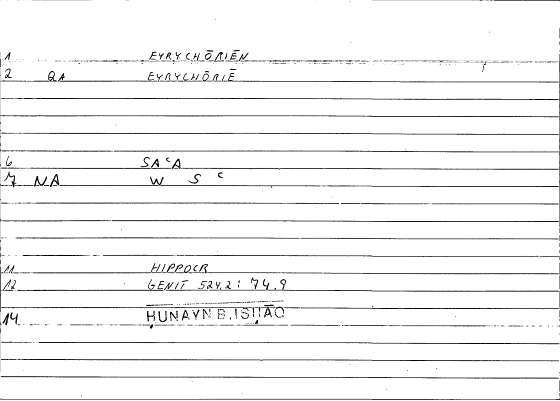 1 EYRYCHŌRIĒN
2 QA EYRYCHŌRIĒ
6 SAᶜA
7 NA W S ᶜ
11 HIPPOCR
12 GENIT 524,2: 74,9
14 ḤUNAYN B. ISḤĀQ